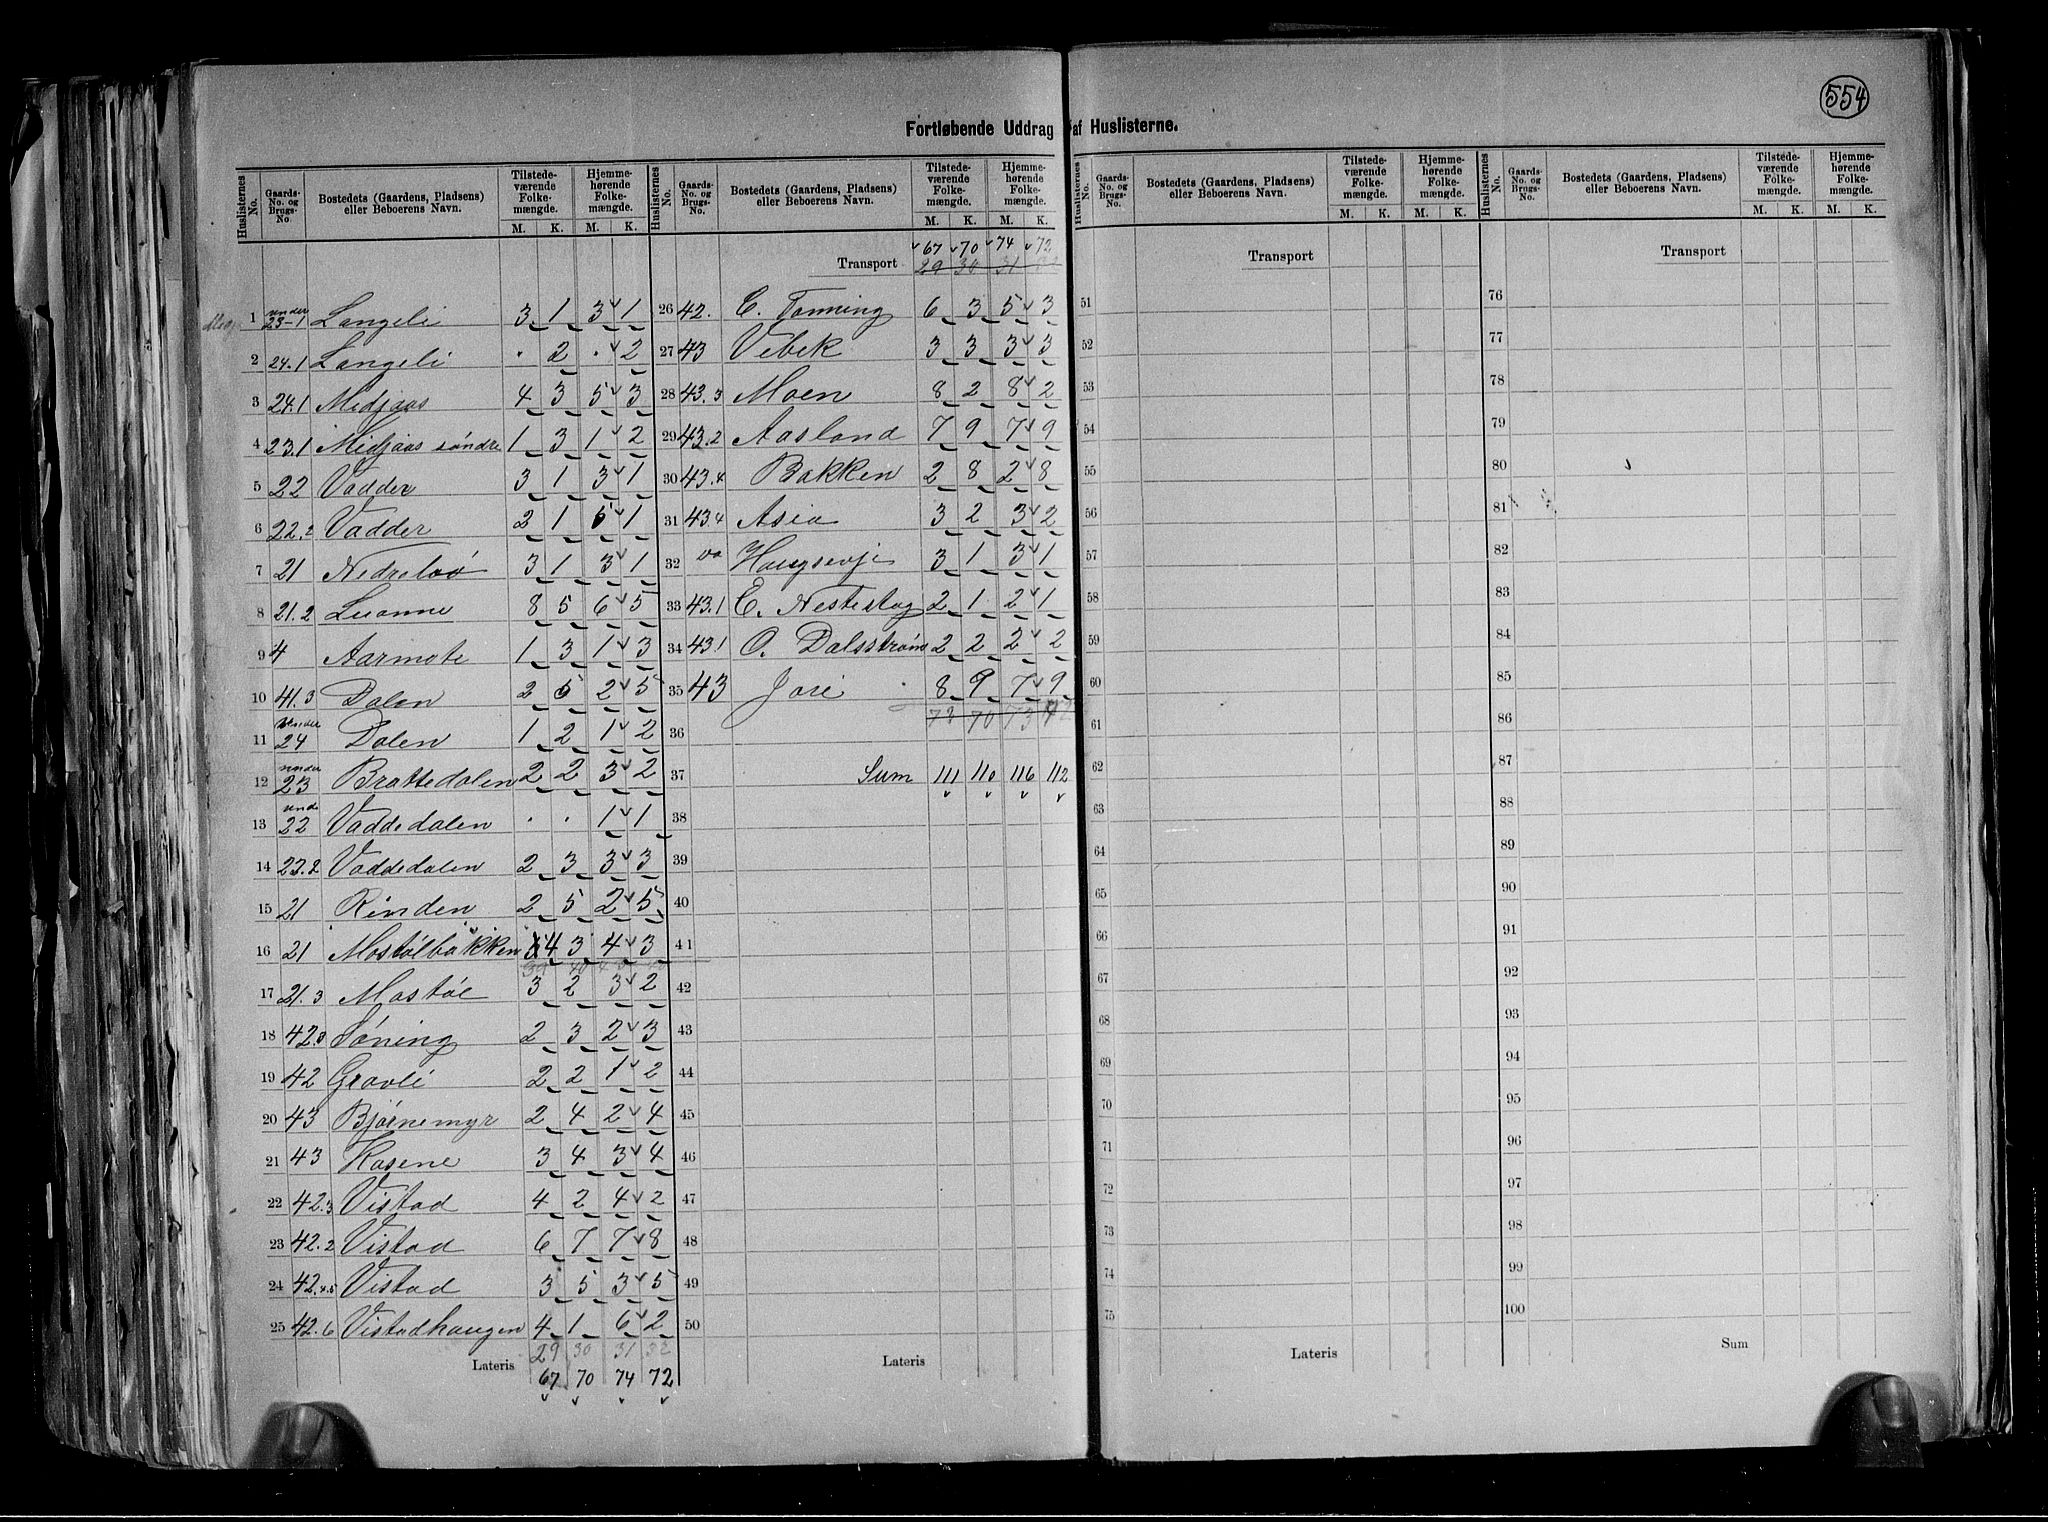 554
Fortløbende Uddrag af Huslisterne.
Huslisternes No. | Gaards-No. og Brugs-No. | Bostedets (Gaardens, Pladsens) eller Beboerens Navn. | Tilstedeværende Folkemængde. M. K. | Hjemmehørende Folkemængde. M. K.
1 under 23-1 Langeli 3 1 3 1
2 24.1 Langeli . 2 . 2
3 24.1 Midjaas 4 3 5 3
4 23.1 Midjaas søndre 1 3 1 2
5 22 Vadder 3 1 3 1
6 22.2 Vadder 2 1 5 1
7 21 Nedreløø 3 1 3 1
8 21.2 Luanne 8 5 6 5
9 4 Aarmote 1 3 1 3
10 41.3 Dalen 2 5 2 5
11 under 24 Dalen 1 2 1 2
12 under 23 Brattedalen 2 2 3 2
13 unde 22 Vaddedalen . . 1 1
14 23.2 Vaddedalen 2 3 3 3
15 21 Rinden 2 5 2 5
16 21 Mostølbakken 4 3 4 3
17 21.3 Mostøl 3 2 3 2
18 42.8 Tøning 2 3 2 3
19 42 Gravli 2 2 1 2
20 43 Bjørnemyr 2 4 2 4
21 43 Kasene 3 4 3 4
22 42.3 Vistad 4 2 4 2
23 42.2 Vistad 6 7 7 8
24 42.4.5 Vistad 3 5 3 5
25 42.6 Vistadhaugen 4 1 6 2
29 30 31 32
Lateris
67 70 74 72
Huslisternes No. | Gaards-No. og Brugs-No. | Bostedets (Gaardens, Pladsens) eller Beboerens Navn. | Tilstedeværende Folkemængde. M. K. | Hjemmehørende Folkemængde. M. K.
67 70 74 72
Transport 29 30 31 32
26 42. C. Tonning 6 3 5 3
27 43 Vebek 3 3 3 3
28 43.3 Moen 8 2 8 2
29 43.2 Aasland 7 9 7 9
30 43.4 Bakken 2 8 2 8
31 43.4 Asia 3 2 3 2
32 Haugsevje 3 1 3 1
33 43.1 C. Nestestog 2 1 2 1
34 43.1 O. Dalsstrøm 2 2 2 2
35 43 Jore 8 9 7 9
73 70 73 72
36
37 Sum 111 110 116 112
38
39
40
41
42
43
44
45
46
47
48
49
50
Lateris
Huslisternes No. | Gaards-No. og Brugs-No. | Bostedets (Gaardens, Pladsens) eller Beboerens Navn. | Tilstedeværende Folkemængde. M. K. | Hjemmehørende Folkemængde. M. K.
Transport
51
52
53
54
55
56
57
58
59
60
61
62
63
64
65
66
67
68
69
70
71
72
73
74
75
Lateris
Huslisternes No. | Gaards-No. og Brugs-No. | Bostedets (Gaardens, Pladsens) eller Beboerens Navn. | Tilstedeværende Folkemængde. M. K. | Hjemmehørende Folkemængde. M. K.
Transport
76
77
78
79
80
81
82
83
84
85
86
87
88
89
90
91
92
93
94
95
96
97
98
99
100
Sum